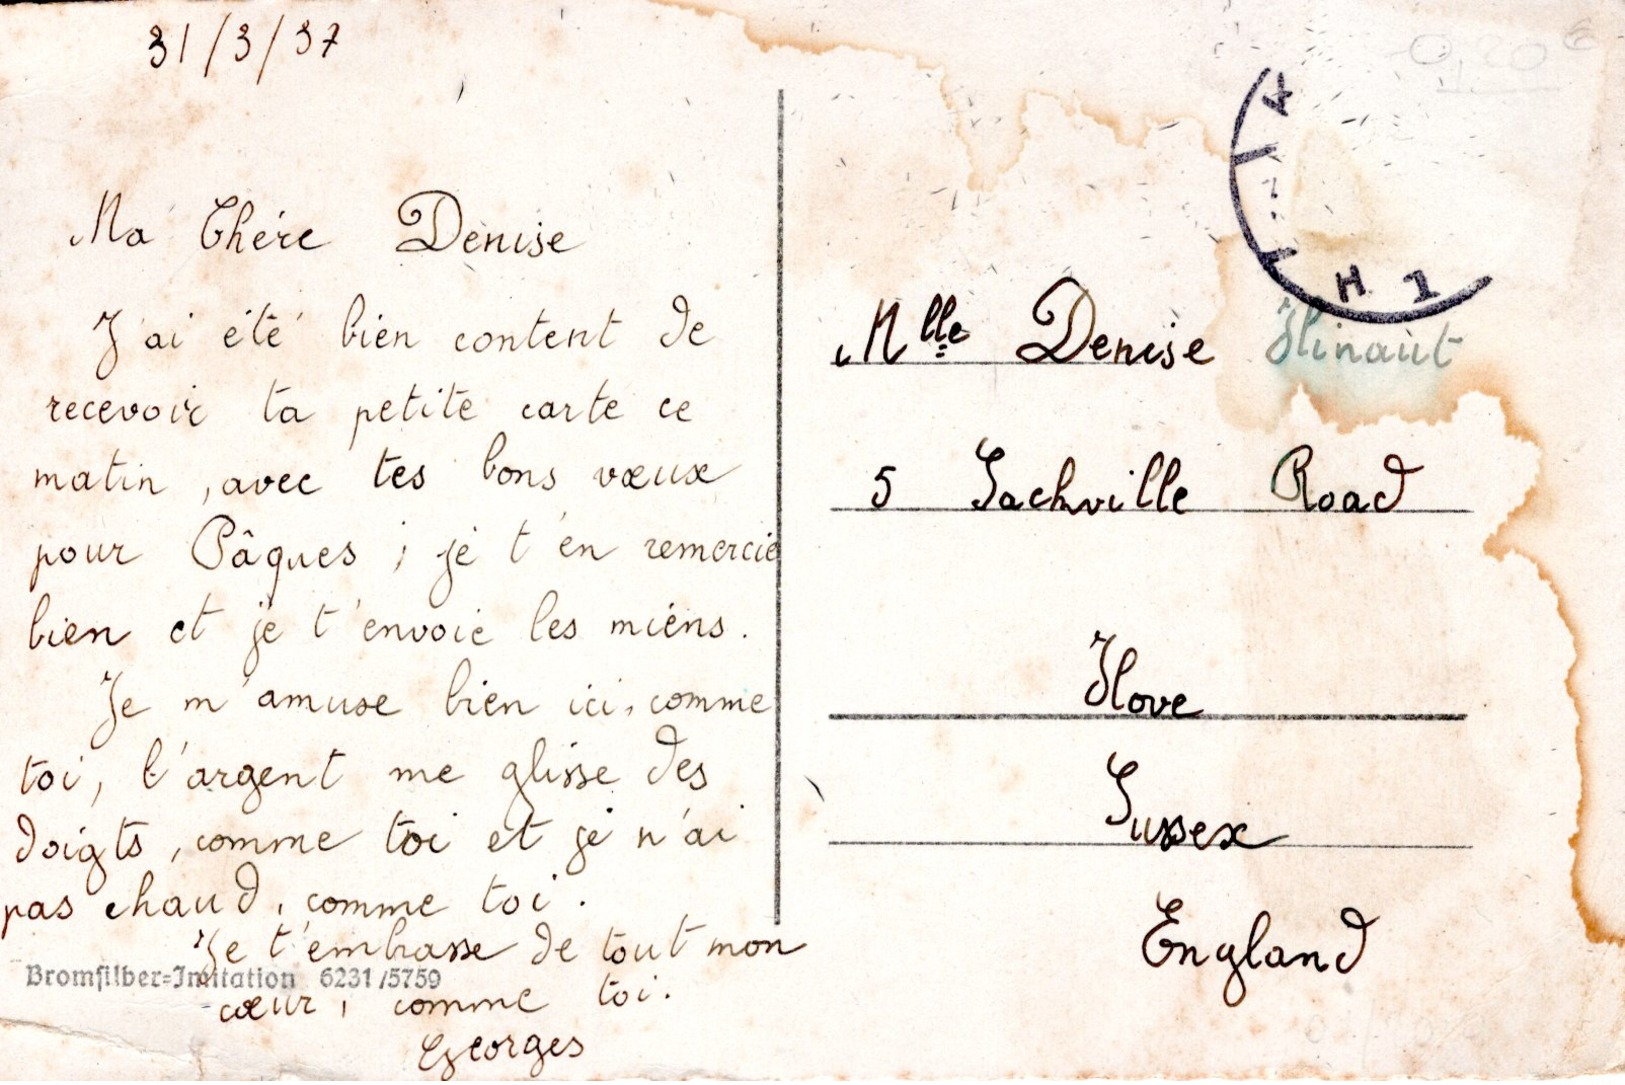 31/3/37
Ma Chère Denise
J'ai été bien content de
recevoir ta petite carte ce
matin, avec tes bons vœux
pour Pâques ; je t'en remercie
bien et je t'envoie les miens.
Je m'amuse bien ici, comme
toi, l'argent me glisse des
doigts, comme toi et je n'ai
pas chaud, comme toi.
Je t'embrasse de tout mon
cœur, comme toi.
Georges
Bromsilber=Imitation 6231/5759
0,20 €
Mlle Denise Hinaut
5 Sackville Road
Hove
Sussex
England